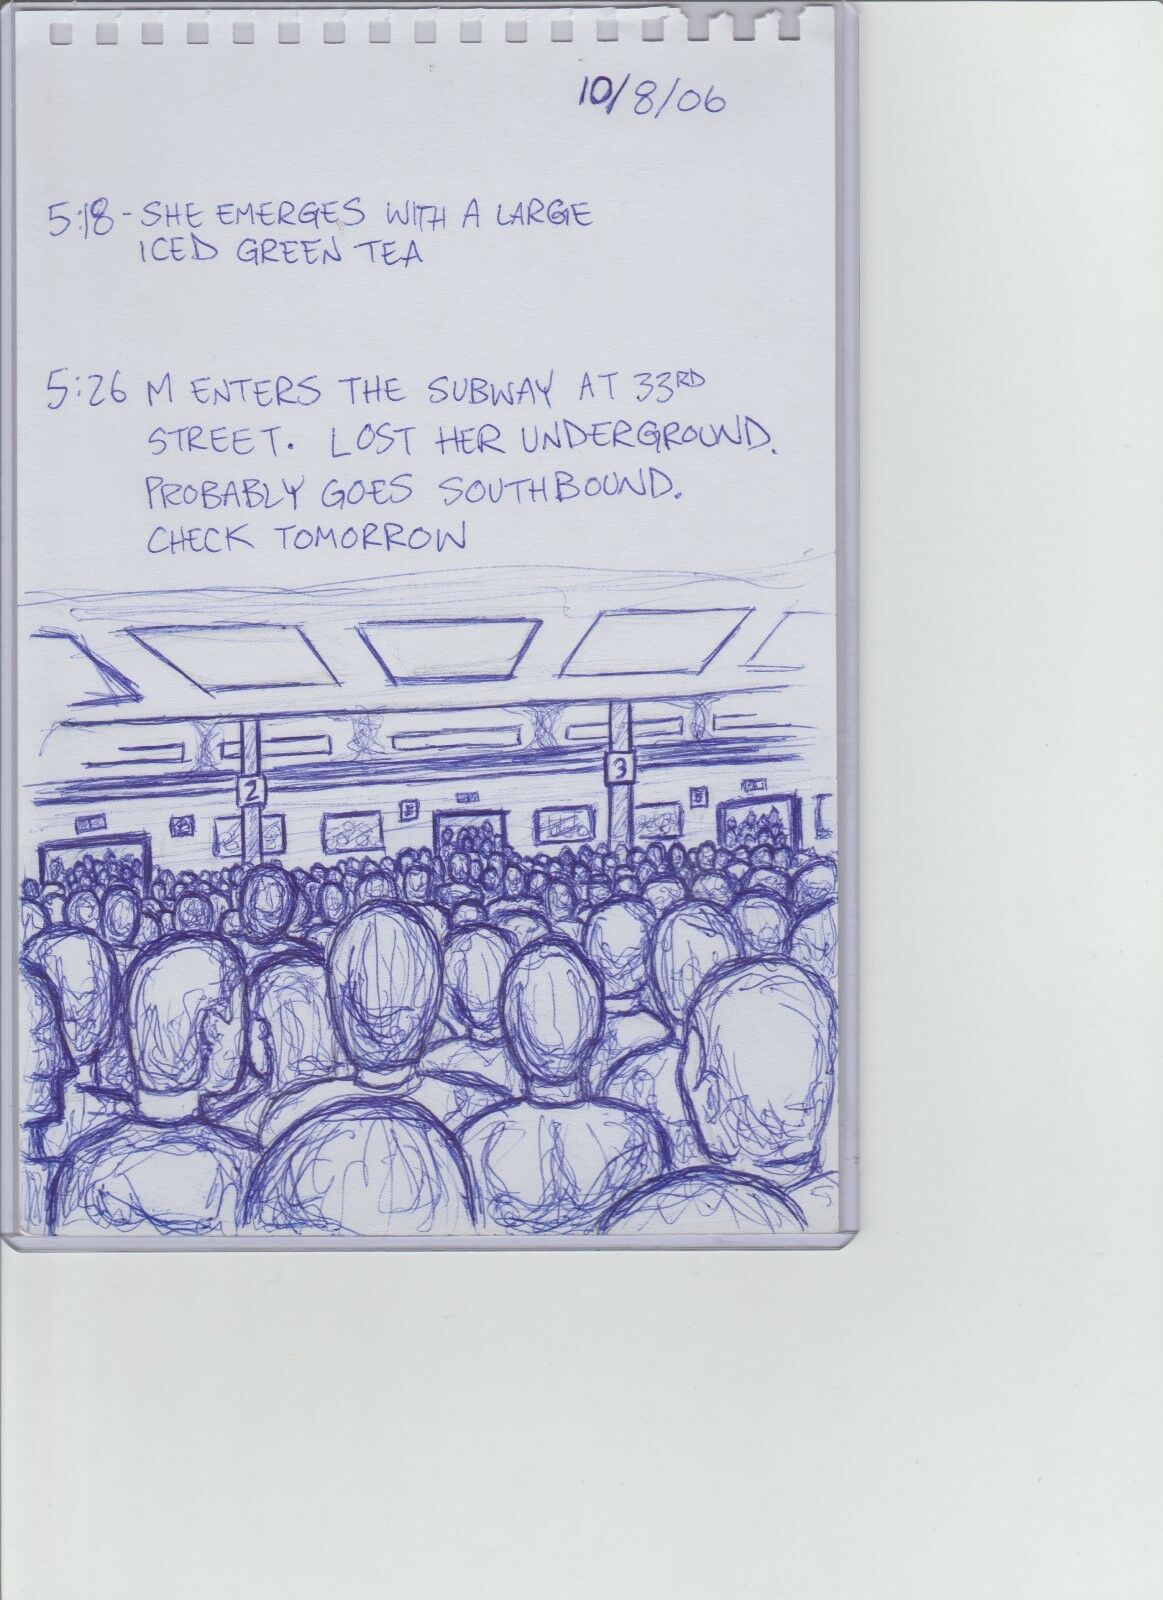 10/8/06
5:18 - SHE EMERGES WITH A LARGE
ICED GREEN TEA
5:26 M ENTERS THE SUBWAY AT 33RD
STREET. LOST HER UNDERGROUND.
PROBABLY GOES SOUTHBOUND.
CHECK TOMORROW
2
3